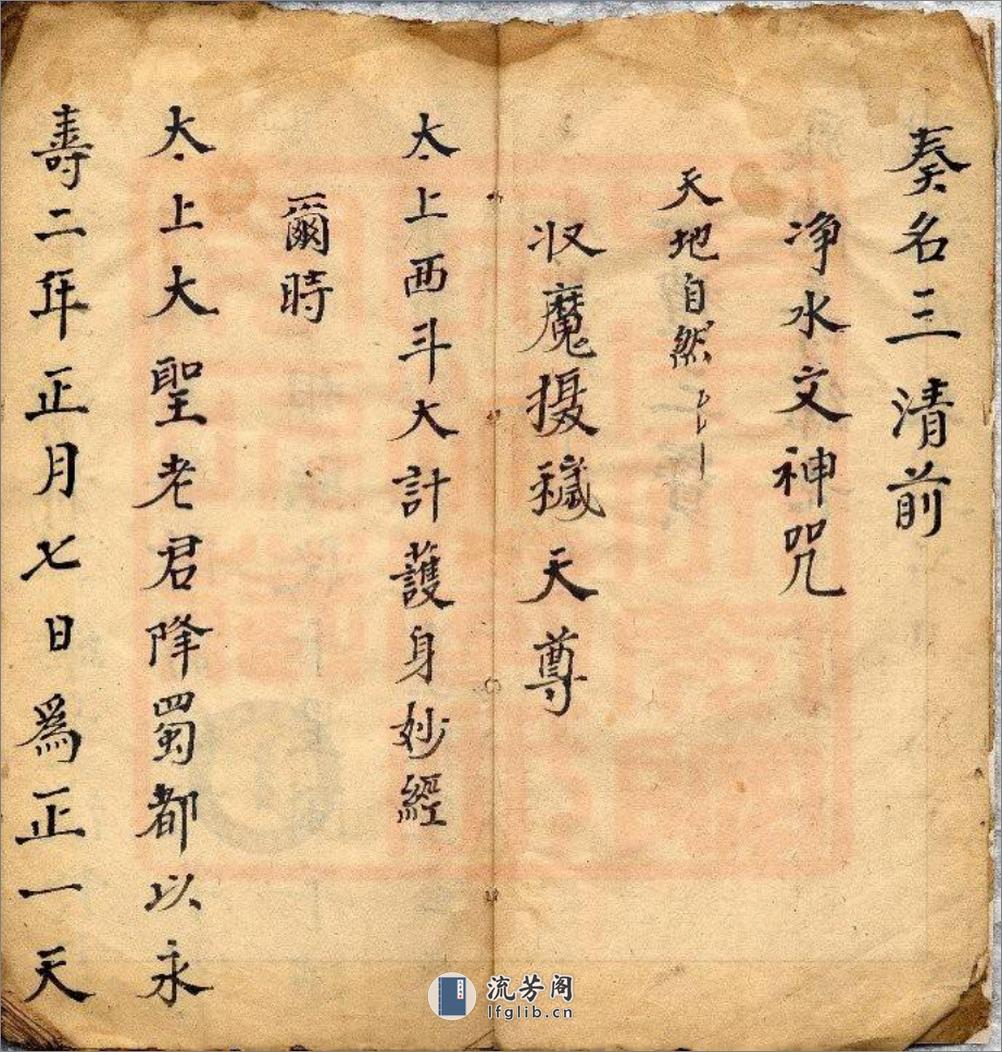 奏名三清前
净水文神咒
天地自然
收魔摄穢天尊
太上西斗大計護身妙經
爾時
太上大聖老君降蜀都以永
壽二年正月七日為正一天
流芳阁
lfglib.cn